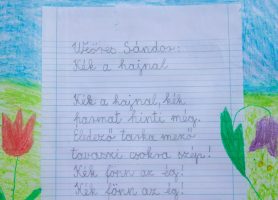 Weöres Sándor:
Kék a hajnal
Kék a hajnal, kék
parmat hinti meg.
tarka mező
tavaszi csokra szép!
Kék fönn az ég!
Kék fönn az ég!